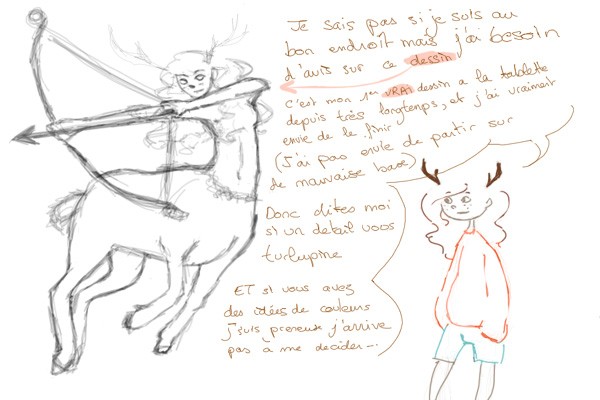 Je sais pas si je suis au
bon endroit mais j'ai besoin
d'avis sur ce dessin
c'est mon 1er VRAI dessin a la tablette
depuis très longtemps, et j'ai vraiment
envie de le finir
(J'ai pas envie de partir sur
de mauvaise base)
Donc dites moi
si un detail vous
turlupine
ET si vous avez
des idées de couleurs
j'suis preneuse j'arrive
pas à me decider...